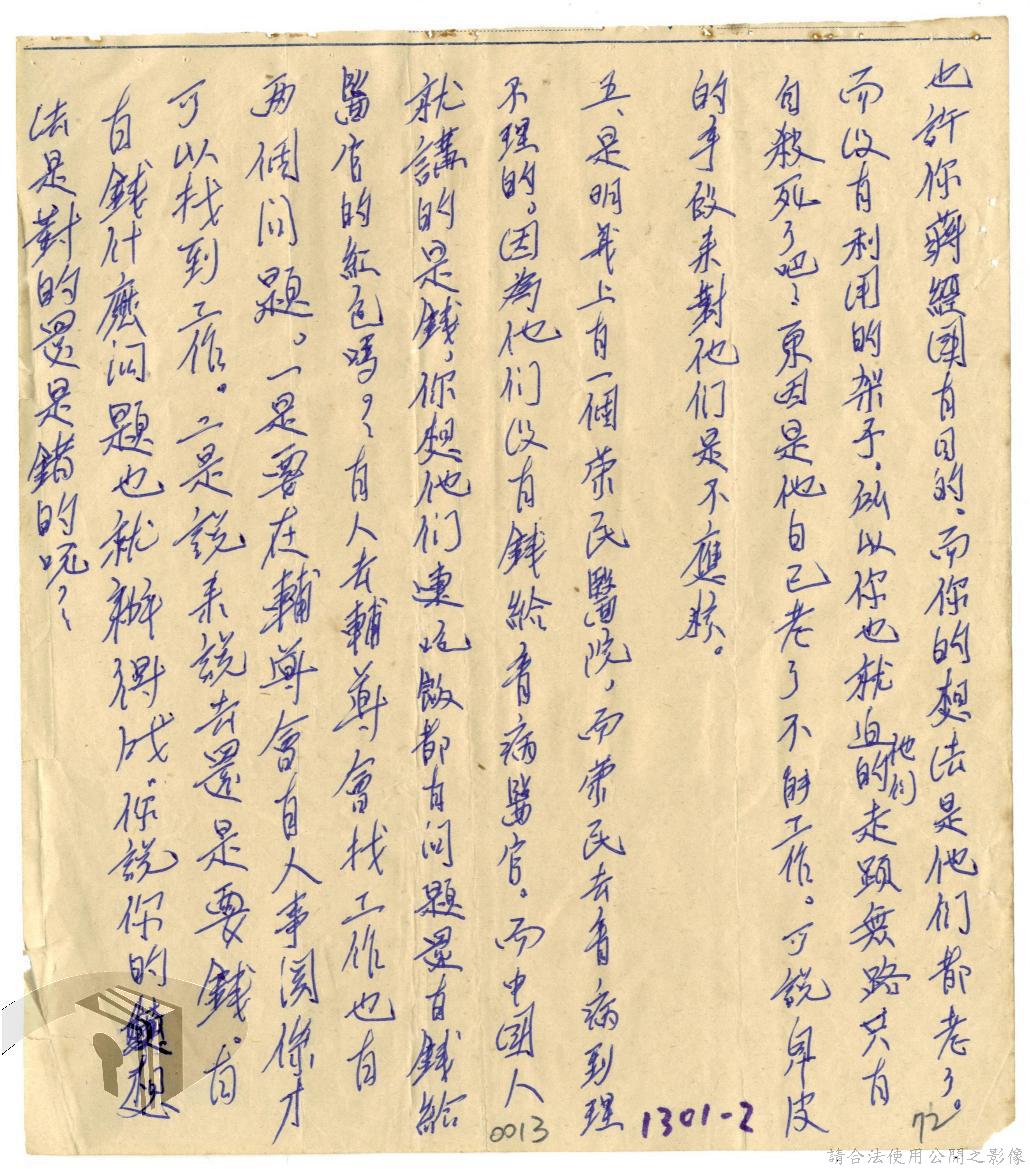 也許你蔣經國有目的、而你的想法是他們都老了。
而沒有利用的架子、所以你也就迫的他們走頭無路只有
自殺死了吧、更因是他自己老了不能工作。可說卑皮
的手段来對他們是不應該。
五、是明義上有一個荣民醫院，而荣民去看病到理
不理的。因為他们没有錢給看病醫官。而中國人
就講的是錢，你想他们連吃飯都有问題還有錢給
醫官的紅包嗎？有人去輔導會找工作也有
两個问題。一是要在輔導會有人事関係才
可以找到工作。二是説来説去還是要錢。有
有錢什麽问題也就辦得成。你説你的想
法是對的還是錯的呢？
0013
1301-2
72
請合法使用公開之影像